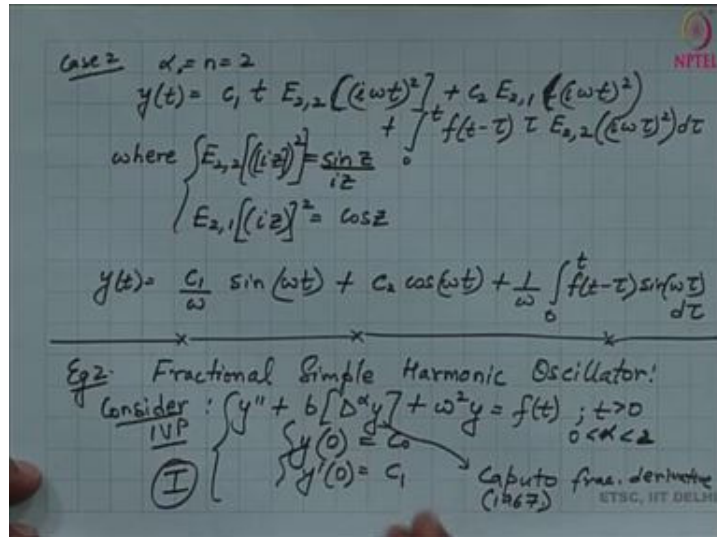 NPTEL
Case 2 α = n = 2
y(t) = c₁ t E₂,₂[(iωt)²] + c₂ E₂,₁((iωt)²)
+ ∫₀ᵗ f(t-τ) τ E₂,₂((iωτ)²)dτ
where { E₂,₂[(iz)²] = sin z / iz
E₂,₁[(iz)]² = cos z
y(t) = c₁/ω sin(ωt) + c₂ cos(ωt) + 1/ω ∫₀ᵗ f(t-τ) sin(ωτ) dτ
Eg 2. Fractional Simple Harmonic Oscillator:
Consider : { y'' + b[D^α y] + ω²y = f(t) ; t>0
IVP { y(0) = c₀ 0<α<2
I y'(0) = c₁ Caputo frac. derivative
(1967)
ETSC, IIT DELHI